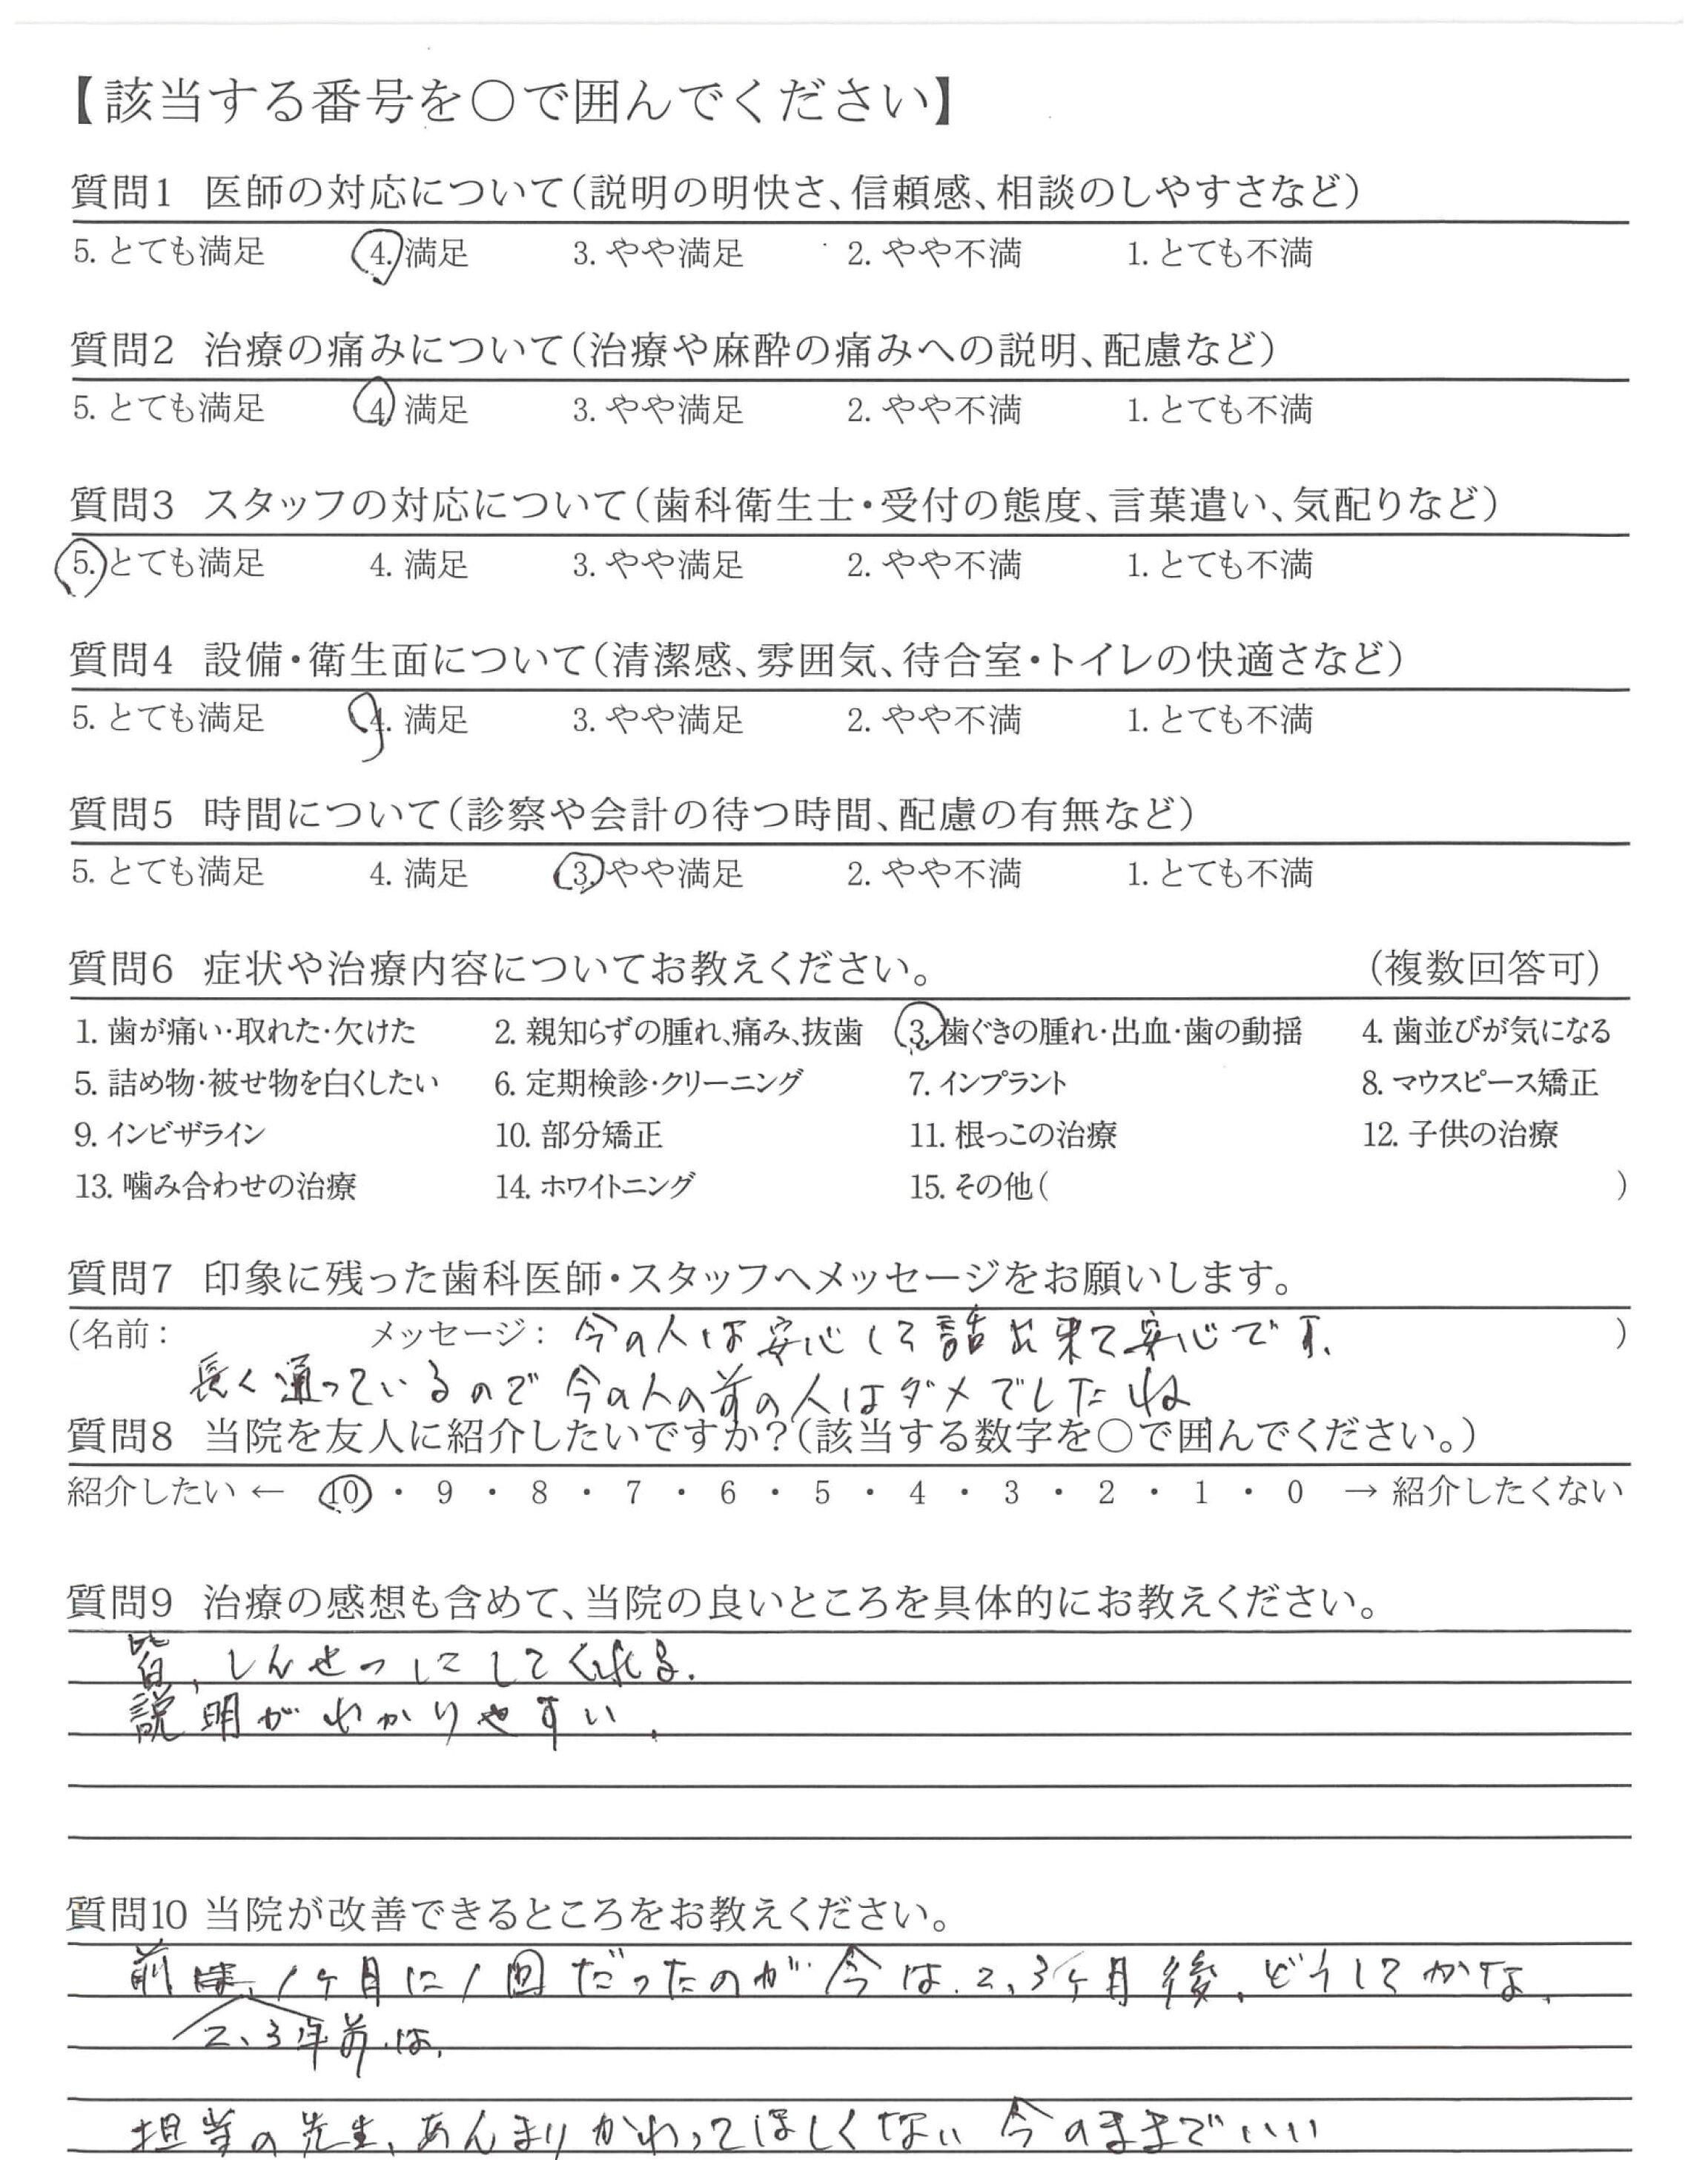 【該当する番号を〇で囲んでください】
質問1 医師の対応について(説明の明快さ、信頼感、相談のしやすさなど)
5. とても満足 4. 満足 3. やや満足 2. やや不満 1. とても不満
質問2 治療の痛みについて(治療や麻酔の痛みへの説明、配慮など)
5. とても満足 4. 満足 3. やや満足 2. やや不満 1. とても不満
質問3 スタッフの対応について(歯科衛生士・受付の態度、言葉遣い、気配りなど)
5. とても満足 4. 満足 3. やや満足 2. やや不満 1. とても不満
質問4 設備・衛生面について(清潔感、雰囲気、待合室・トイレの快適さなど)
5. とても満足 4. 満足 3. やや満足 2. やや不満 1. とても不満
質問5 時間について(診察や会計の待つ時間、配慮の有無など)
5. とても満足 4. 満足 3. やや満足 2. やや不満 1. とても不満
質問6 症状や治療内容についてお教えください。 (複数回答可)
1. 歯が痛い・取れた・欠けた 2. 親知らずの腫れ、痛み、抜歯 3. 歯ぐきの腫れ・出血・歯の動揺 4. 歯並びが気になる
5. 詰め物・被せ物を白くしたい 6. 定期検診・クリーニング 7. インプラント 8. マウスピース矯正
9. インビザライン 10. 部分矯正 11. 根っこの治療 12. 子供の治療
13. 噛み合わせの治療 14. ホワイトニング 15. その他( )
質問7 印象に残った歯科医師・スタッフへメッセージをお願いします。
(名前: メッセージ: 今の人は安心して話出来て安心です、 )
長く通っているので今の人の前の人はダメでしたね
質問8 当院を友人に紹介したいですか?(該当する数字を〇で囲んでください。)
紹介したい ← 10 ・ 9 ・ 8 ・ 7 ・ 6 ・ 5 ・ 4 ・ 3 ・ 2 ・ 1 ・ 0 → 紹介したくない
質問9 治療の感想も含めて、当院の良いところを具体的にお教えください。
皆、しんせつにしてくれる.
説明がわかりやすい.
質問10 当院が改善できるところをお教えください。
前は、1ヶ月に1回だったのが今は.2、3ヶ月後、どうしてかな、
2、3年前は、
担当の先生、あんまりかわってほしくない 今のままでいい